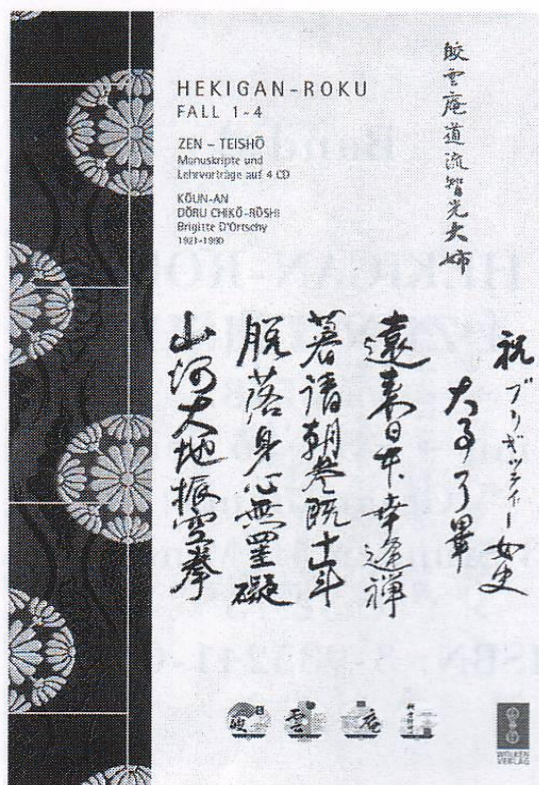 HEKIGAN-ROKU
FALL 1-4
ZEN – TEISHŌ
Manuskripte und
Lehrvorträge auf 4 CD
KŌUN-AN
DŌRU CHIKŌ-RŌSHI
Brigitte D'Ortschy
1921-1990
皎雲庵道流智光大姉
祝ブリギッティー女史
大事了畢
遠来日本幸逢禅
暮請朝参既十年
脱落身心無罣礙
山河大地振空拳
雲
庵
WOLKEN
VERLAG